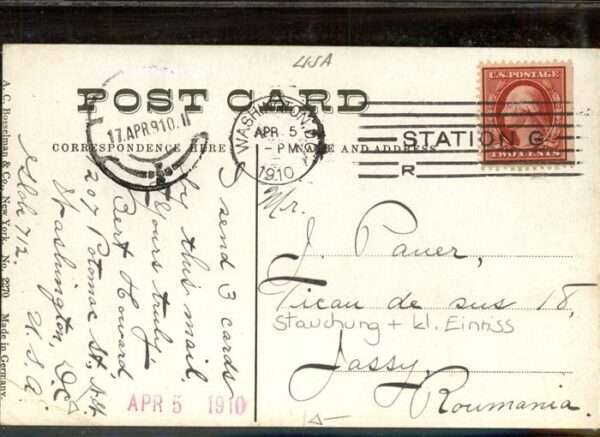 USA
POST CARD
CORRESPONDENCE HERE
NAME AND ADDRESS
17.APR.910.11
WASHINGTON, D.C.
APR 5
-PM
1910
STATION G
R
U.S. POSTAGE
TWO CENTS
I send 3 cards
by this mail.
Yours truly
Bert Howard,
207 Potomac St, N.W.
Washington, D.C.
U.S.A.
712.
Mr.
J. Pauer,
Ticau de sus 18,
Stauchung + kl. Einriss
Jassy,
Roumania.
APR 5 1910
A. C. Bosselman & Co., New York. No. 2270 Made in Germany.